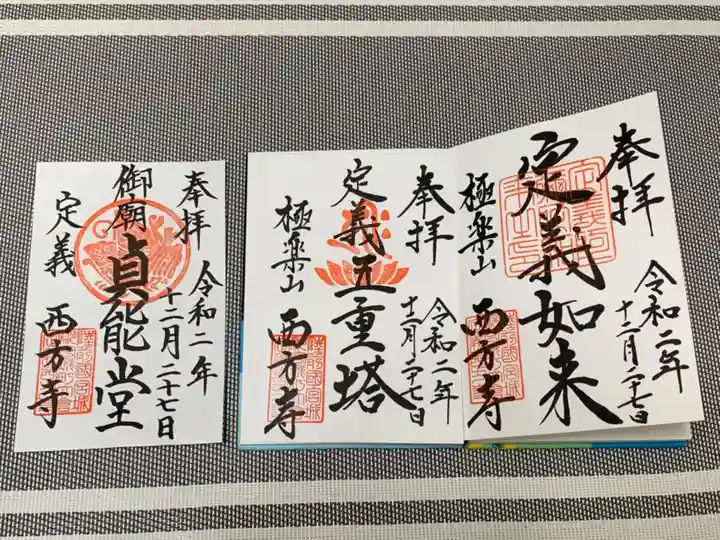 奉拝
令和二年
十二月二十七日
定義如来
極楽山
西方寺
奉拝
令和二年
十二月二十七日
定義五重塔
極楽山
西方寺
奉拝
令和二年
十二月二十七日
御廟
貞能堂
定義
西方寺